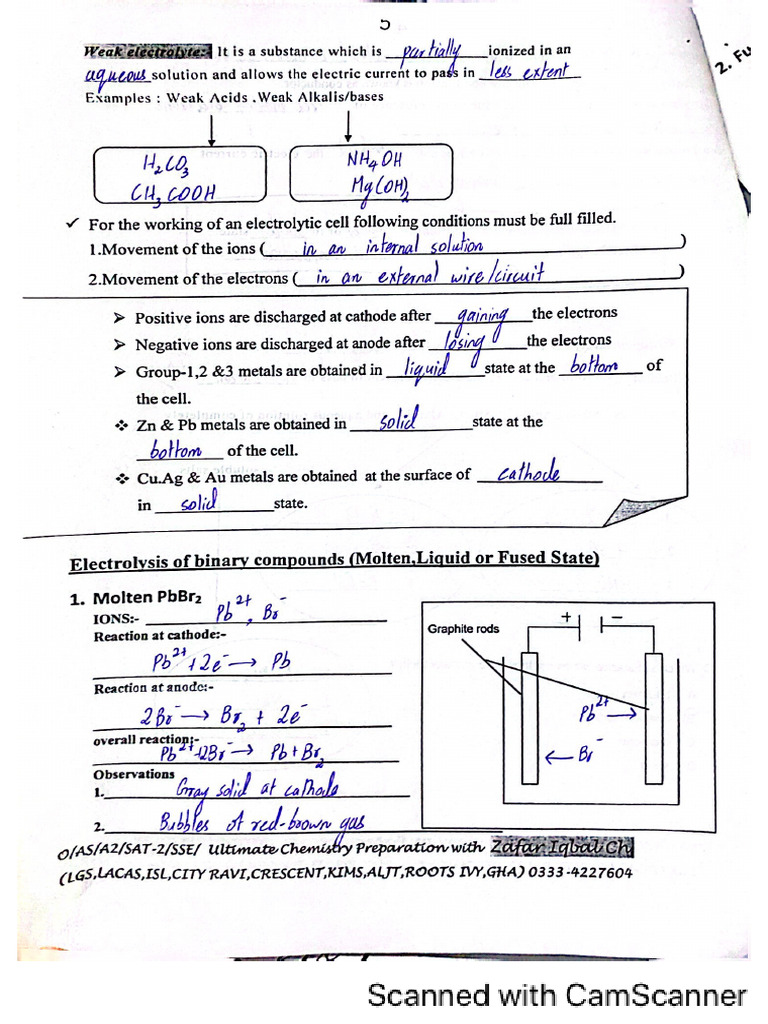 5
2. Fu
Weak electrolyte:- It is a substance which is partially ionized in an
aqueous solution and allows the electric current to pass in less extent
Examples : Weak Acids .Weak Alkalis/bases
H₂CO₃ NH₄OH
CH₃COOH Mg(OH)₂
✓ For the working of an electrolytic cell following conditions must be full filled.
1.Movement of the ions ( in an internal solution )
2.Movement of the electrons ( in an external wire/circuit )
➢ Positive ions are discharged at cathode after gaining the electrons
➢ Negative ions are discharged at anode after losing the electrons
➢ Group-1,2 &3 metals are obtained in liquid state at the bottom of
the cell.
❖ Zn & Pb metals are obtained in solid state at the
bottom of the cell.
❖ Cu.Ag & Au metals are obtained at the surface of cathode
in solid state.
Electrolysis of binary compounds (Molten,Liquid or Fused State)
1. Molten PbBr₂
IONS:- Pb²⁺, Br⁻
Reaction at cathode:-
Pb²⁺ + 2e⁻ → Pb
Reaction at anode:-
2Br⁻ → Br₂ + 2e⁻
overall reaction:-
Pb²⁺ + 2Br⁻ → Pb + Br₂
Observations
1. Gray solid at cathode
2. Bubbles of red-brown gas
+ −
Graphite rods
Pb²⁺ →
← Br⁻
O/AS/A2/SAT-2/SSE/ Ultimate Chemistry Preparation with Zafar Iqbal Ch
(LGS,LACAS,ISL,CITY RAVI,CRESCENT,KIMS,ALJT,ROOTS IVY,GHA) 0333-4227604
Scanned with CamScanner